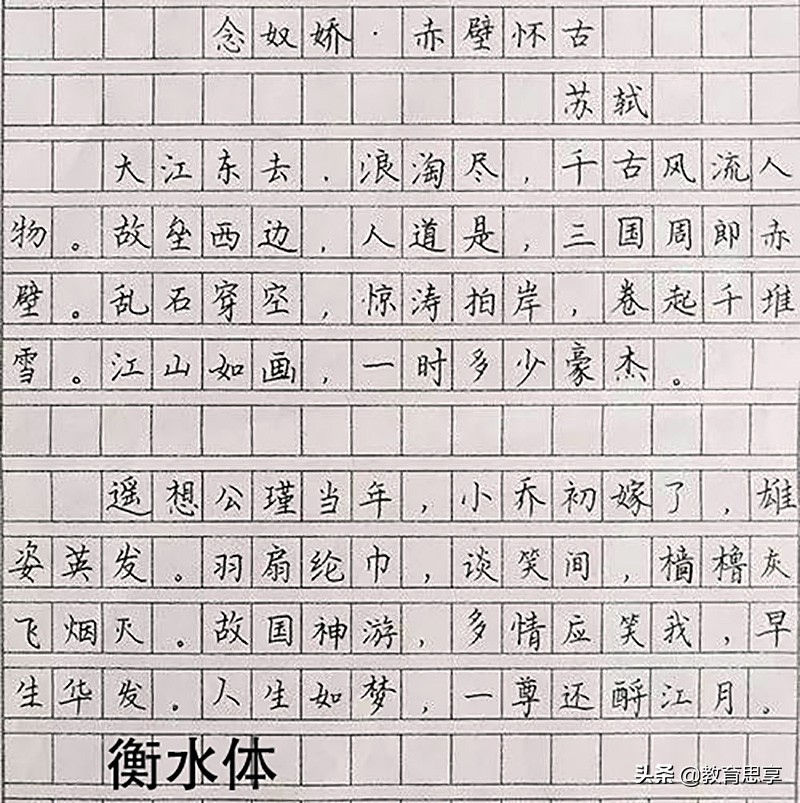 念奴娇·赤壁怀古
苏轼
大江东去，浪淘尽，千古风流人
物。故垒西边，人道是，三国周郎赤
壁。乱石穿空，惊涛拍岸，卷起千堆
雪。江山如画，一时多少豪杰。
遥想公瑾当年，小乔初嫁了，雄
姿英发。羽扇纶巾，谈笑间，樯橹灰
飞烟灭。故国神游，多情应笑我，早
生华发。人生如梦，一尊还酹江月。
衡水体
头条 @教育思享